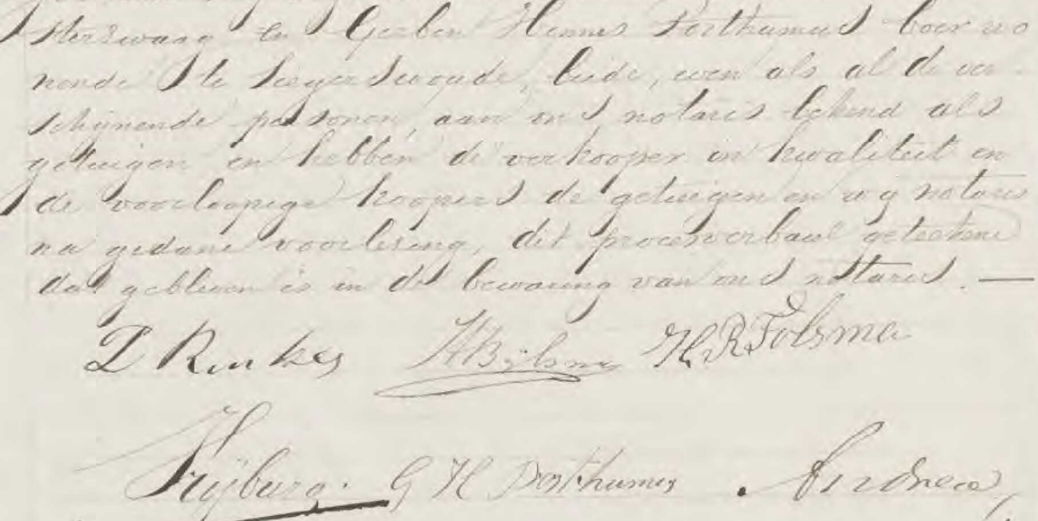 Sterzwaag en Gerben Hennes Posthumus boer wo
nende te Siegerswoude, beide, even als al de ver-
schijnende personen, aan ons notaris bekend als
getuigen en hebben de verkooper in kwaliteit en
de voorloopige koopers de getuigen en wij notaris
na gedane voorlezing, dit procesverbaal geteekend
dat gebleven is in de bewaring van ons notaris. —
D Renkes HBijlsma H.R. Tolsma
Frijburg. G H Posthumus Andreae